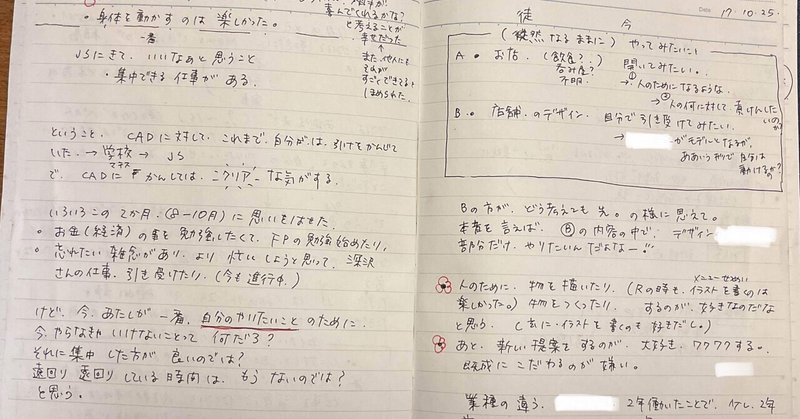 ・身体を動かすのは 楽しかった。
喜んでくれるかな？
と考えることが
幸せだった
↑
また、他人にも
それが
すごくできてる！
とほめられた。
一番
JSにきて、いいなぁと思うこと
・集中できる仕事がある。
ということ。CADに対して、これまで、自分がは、引けをかんじて
いた。→学校→ JS
で、CADに かんしては、クリアーな気がする。
いろいろこの2か月。(8-10月)に思いをはせた。
・お金(経済)の事を勉強したくて、FPの勉強始めたり、
・忘れたい雑念があり、より忙しくしようと思って、深沢
さんの仕事、引き受けたり。(今も進行中)
けど、今、あたしが一番、自分のやりたいことのために、
今、やらなきゃいけないことって 何だろ？
それに集中した方が 良いのでは？
遠回り 遠回りしている時間は、もうないのでは？
と思う。
Date 17・10・25・
徒 今
(徒然なるままに) やってみたいこと
A・お店。(飲食？ 開いてみたい。
呑み屋？
不明
→①人のためになるような、
→②人の何に対して、貢けんしたいのか
B・店舗のデザイン、自分で引き受けてみたい。
→ がモデルとなるが、
ああいう形で 自分は
動けるのか？
Bの方が、どう考えても 先。の様に思えて。
本音を言えば、Ⓑの内容の中で、デザイン
部分だけ、やりたいんだよなー。
人のために、物を描いたり、(Rの時も、イラストを書くのは
楽しかった。) 物をつくったり、するのが、好きなのだな
と思う。(あに・イラストを書くのも好きだし。)
あと、新しい提案をするのが、大好き、ワクワクする。
既成にこだわるのが嫌い。
業種の違う、 2年働いたことで、